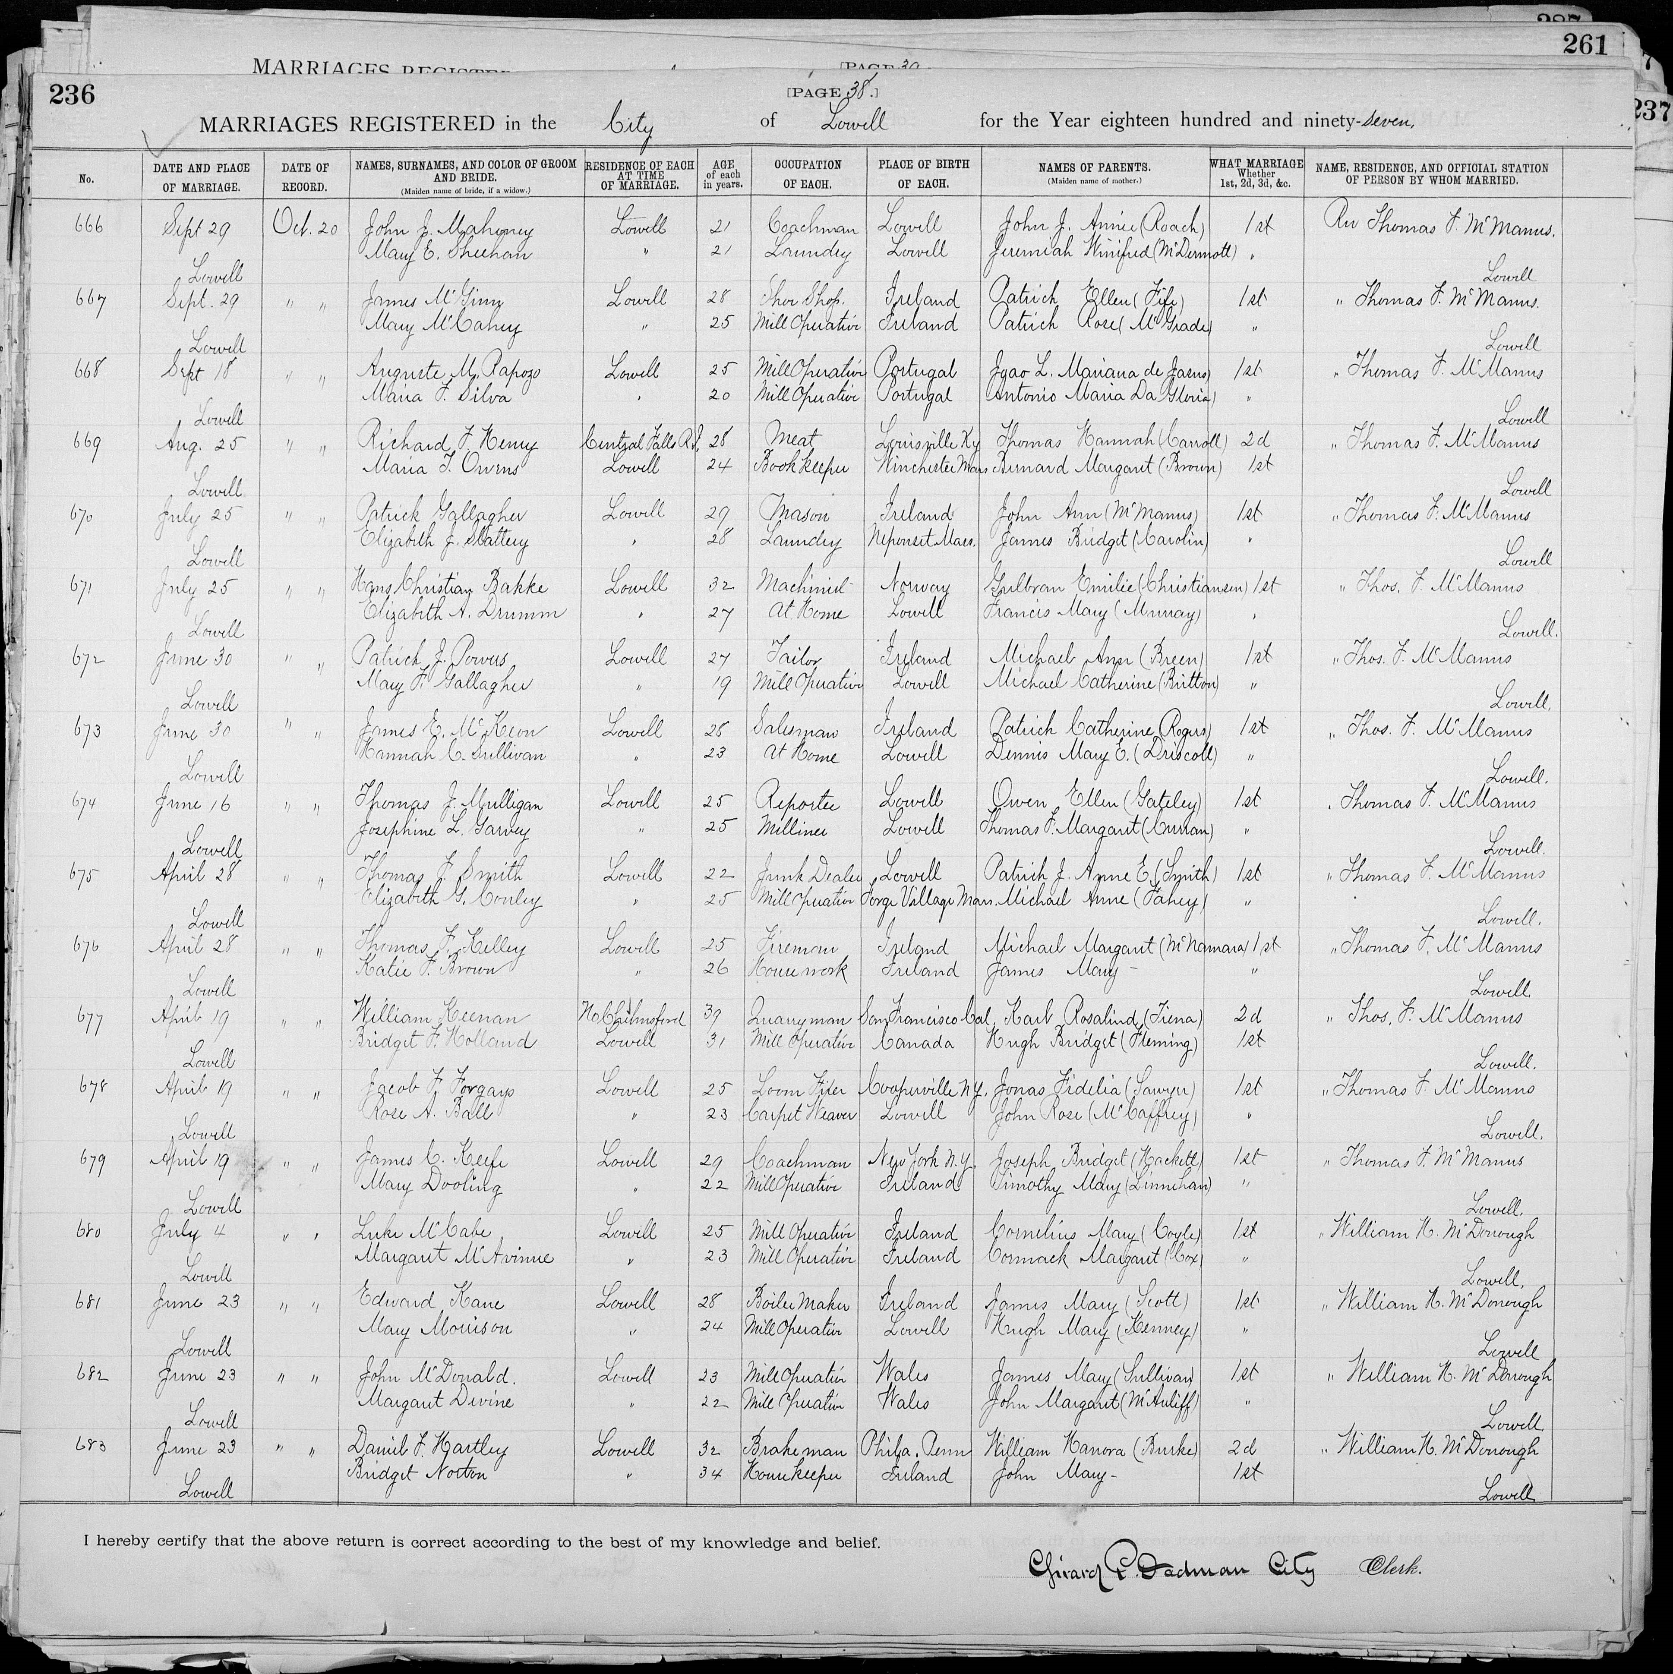 287
261
MARRIAGES REGISTER
[PAGE 39
237
236
[PAGE 38.]
MARRIAGES REGISTERED in the City of Lowell for the Year eighteen hundred and ninety-seven.
No. DATE AND PLACE OF MARRIAGE. DATE OF RECORD. NAMES, SURNAMES, AND COLOR OF GROOM AND BRIDE. (Maiden name of bride, if a widow.) RESIDENCE OF EACH AT TIME OF MARRIAGE. AGE of each in years. OCCUPATION OF EACH. PLACE OF BIRTH OF EACH. NAMES OF PARENTS. (Maiden name of mother.) WHAT MARRIAGE Whether 1st, 2d, 3d, &c. NAME, RESIDENCE, AND OFFICIAL STATION OF PERSON BY WHOM MARRIED.
666 Sept 29 Oct. 20 John J. Mahoney Lowell 21 Coachman Lowell John J. Annie (Roach) 1st Rev Thomas F. McManus.
Mary E. Sheehan " 21 Laundry Lowell Jeremiah Winifred (McDermott) "
Lowell Lowell
667 Sept. 29 " " James McGinn Lowell 28 Shoe Shop. Ireland Patrick Ellen (Fife) 1st " Thomas F. McManus.
Mary McCahey " 25 Mill Operative Ireland Patrick Rose (McGrade) "
Lowell Lowell
668 Sept 18 " " Auguste M. Rapozo Lowell 25 Mill Operative Portugal Joao L. Mariana de Jesus) 1st " Thomas F. McManus
Maria F. Silva " 20 Mill Operative Portugal Antonio Maria Da Gloria) "
Lowell Lowell
669 Aug. 25 " " Richard F. Henry Central Falls R.I. 28 Meat Louisville Ky Thomas Hannah (Carroll) 2d " Thomas F. McManus
Maria T. Owens Lowell 24 Bookkeeper Winchester Mass Bernard Margaret (Brown) 1st
Lowell Lowell
670 July 25 " " Patrick Gallagher Lowell 29 Mason Ireland John Ann (McManus) 1st " Thomas F. McManus
Elizabeth J. Slattery " 28 Laundry Neponset Mass. James Bridget (Carolin) "
Lowell Lowell
671 July 25 " " Hans Christian Bakke Lowell 32 Machinist Norway Gulbran Emilie (Christiansen) 1st " Thos. F. McManus
Elizabeth A. Drumm " 27 At Home Lowell Francis Mary (Murray) "
Lowell Lowell.
672 June 30 " " Patrick J. Powers Lowell 27 Tailor Ireland Michael Ann (Breen) 1st " Thos. F. McManus
Mary F. Gallagher " 19 Mill Operative Lowell Michael Catherine (Britton) "
Lowell Lowell.
673 June 30 " " James E. McKeon Lowell 28 Salesman Ireland Patrick Catherine (Rogers) 1st " Thos. F. McManus
Hannah C. Sullivan " 23 At Home Lowell Dennis Mary E. (Driscoll) "
Lowell Lowell.
674 June 16 " " Thomas J. Mulligan Lowell 25 Reporter Lowell Owen Ellen (Gateley) 1st " Thomas F. McManus
Josephine L. Garvey " 25 Milliner Lowell Thomas F. Margaret (Curran) "
Lowell Lowell.
675 April 28 " " Thomas F. Smith Lowell 22 Junk Dealer Lowell Patrick J. Anne E. (Smith) 1st " Thomas F. McManus
Elizabeth G. Conley " 25 Mill Operative Forge Village Mass. Michael Anne (Fahey) "
Lowell Lowell.
676 April 28 " " Thomas F. Kelley Lowell 25 Fireman Ireland Michael Margaret (McNamara) 1st " Thomas F. McManus
Katie F. Brown " 26 Housework Ireland James Mary - "
Lowell Lowell.
677 April 19 " " William Keenan No. Chelmsford 39 Quarryman San Francisco Cal Karl Rosalind (Fiena) 2d " Thos. F. McManus
Bridget F. Holland Lowell 31 Mill Operative Canada Hugh Bridget (Fleming) 1st
Lowell Lowell.
678 April 19 " " Jacob F. Forgays Lowell 25 Loom Fixer Cooperville N.Y. Jonas Fidelia (Sawyer) 1st " Thomas F. McManus
Rose A. Ball " 23 Carpet Weaver Lowell John Rose (McCaffrey) "
Lowell Lowell.
679 April 19 " " James C. Keefe Lowell 29 Coachman New York N.Y. Joseph Bridget (Hackett) 1st " Thomas F. McManus
Mary Dooling " 22 Mill Operative Ireland Timothy Mary (Linnehan) "
Lowell Lowell.
680 July 4 " " Luke McCabe Lowell 25 Mill Operative Ireland Cornelius Mary (Coyle) 1st " William H. McDonough
Margaret McAvinue " 23 Mill Operative Ireland Cormack Margaret (Cox) "
Lowell Lowell.
681 June 23 " " Edward Kane Lowell 28 Boiler Maker Ireland James Mary (Scott) 1st " William H. McDonough
Mary Morrison " 24 Mill Operative Lowell Hugh Mary (Kenney) "
Lowell Lowell
682 June 23 " " John McDonald. Lowell 23 Mill Operative Wales James Mary (Sullivan) 1st " William H. McDonough
Margaret Devine " 22 Mill Operative Wales John Margaret (McAuliff) "
Lowell Lowell
683 June 23 " " Daniel F. Hartley Lowell 32 Brakeman Phila. Penn William Hanora (Burke) 2d " William H. McDonough
Bridget Norton " 34 Housekeeper Ireland John Mary - 1st
Lowell Lowell
I hereby certify that the above return is correct according to the best of my knowledge and belief.
Girard P. Dadman City Clerk.